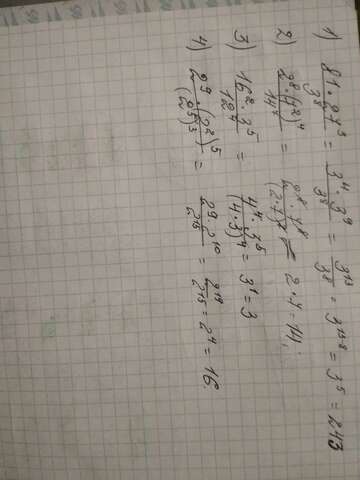 1) 81·27³/3⁸ = 3⁴·3⁹/3⁸ = 3¹³/3⁸ = 3¹³⁻⁸ = 3⁵ = 243
2) 2⁸·(7²)⁴/14⁷ = 2⁸·7⁸/(2·7)⁷ = 2·7 = 14;
3) 16²·3⁵/12⁴ = 4⁴·3⁵/(4·3)⁴ = 3¹ = 3
4) 2⁹·(2²)⁵/(2⁵)³ = 2⁹·2¹⁰/2¹⁵ = 2¹⁹/2¹⁵ = 2⁴ = 16.